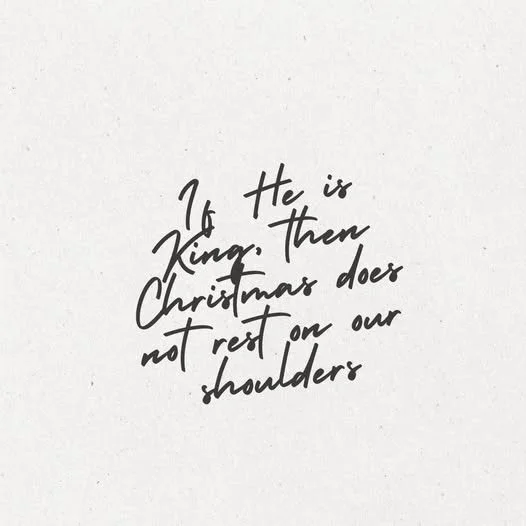 If He is
King, then
Christmas does
not rest on our
shoulders